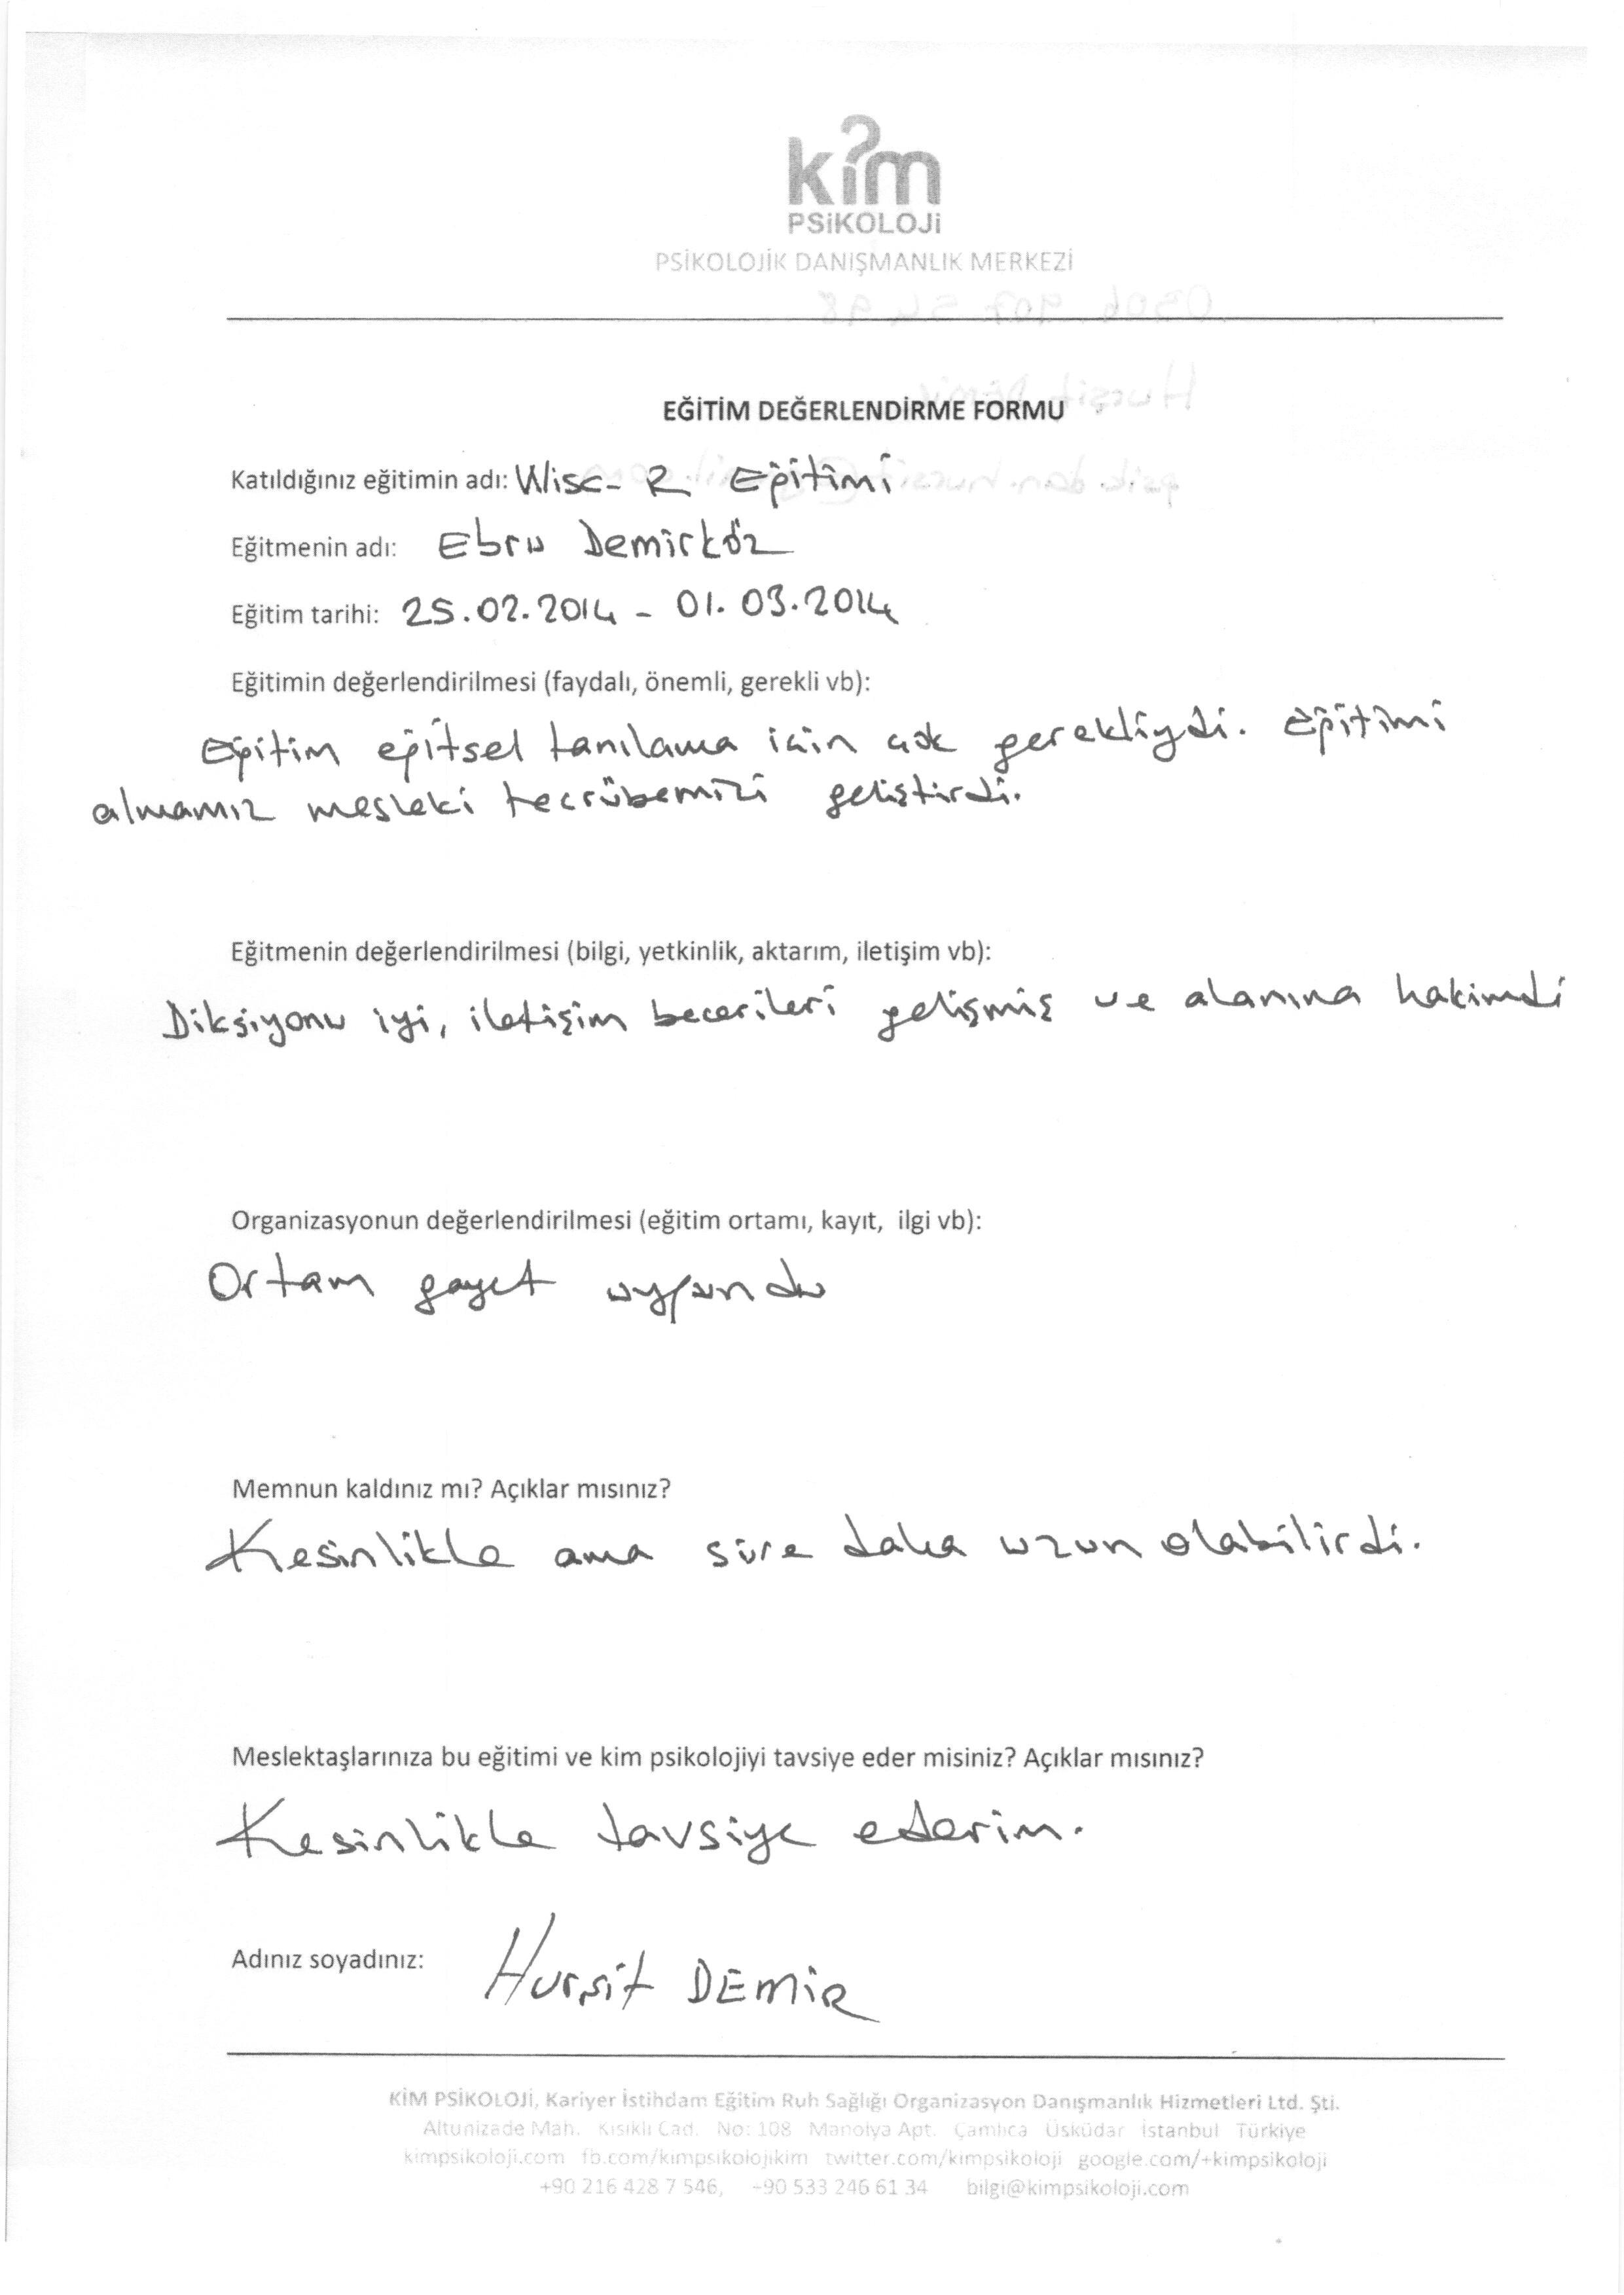 kim
PSiKOLOJi
PSİKOLOJİK DANIŞMANLIK MERKEZİ
EĞİTİM DEĞERLENDİRME FORMU
Katıldığınız eğitimin adı: Wisc-R Eğitimi
Eğitmenin adı: Ebru Demirköz
Eğitim tarihi: 25.02.2014 - 01.03.2014
Eğitimin değerlendirilmesi (faydalı, önemli, gerekli vb):
Eğitim eğitsel tanılama için çok gerekliydi. Eğitimi
almamız mesleki tecrübemizi geliştirdi.
Eğitmenin değerlendirilmesi (bilgi, yetkinlik, aktarım, iletişim vb):
Diksiyonu iyi, iletişim becerileri gelişmiş ve alanına hakimdi
Organizasyonun değerlendirilmesi (eğitim ortamı, kayıt, ilgi vb):
Ortam gayet uygundu
Memnun kaldınız mı? Açıklar mısınız?
Kesinlikle ama süre daha uzun olabilirdi.
Meslektaşlarınıza bu eğitimi ve kim psikolojiyi tavsiye eder misiniz? Açıklar mısınız?
Kesinlikle tavsiye ederim.
Adınız soyadınız: Hurşit DEMİR
KİM PSİKOLOJİ, Kariyer İstihdam Eğitim Ruh Sağlığı Organizasyon Danışmanlık Hizmetleri Ltd. Şti.
Altunizade Mah. Kısıklı Cad. No: 108 Manolya Apt. Çamlıca Üsküdar İstanbul Türkiye
kimpsikoloji.com fb.com/kimpsikolojikim twitter.com/kimpsikoloji google.com/+kimpsikoloji
+90 216 428 7 546, +90 533 246 61 34 bilgi@kimpsikoloji.com